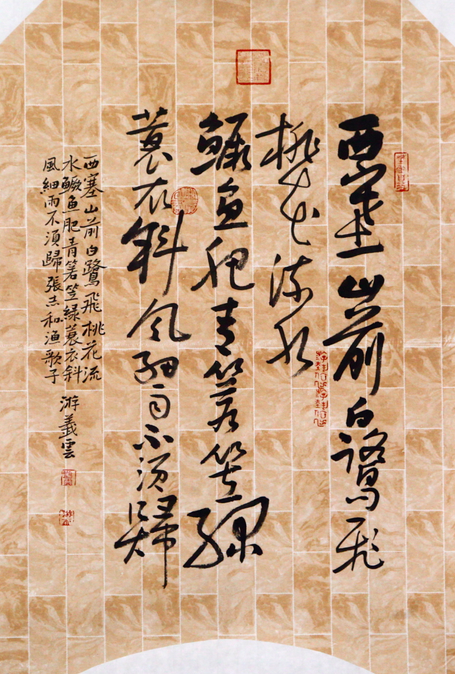 西塞山前白鷺飛
桃花流水
鱖魚肥青箬笠綠
蓑衣斜風細雨不須歸
西塞山前白鷺飛桃花流
水鱖魚肥青箬笠綠蓑衣斜
風細雨不須歸張志和漁歌子
游義雲